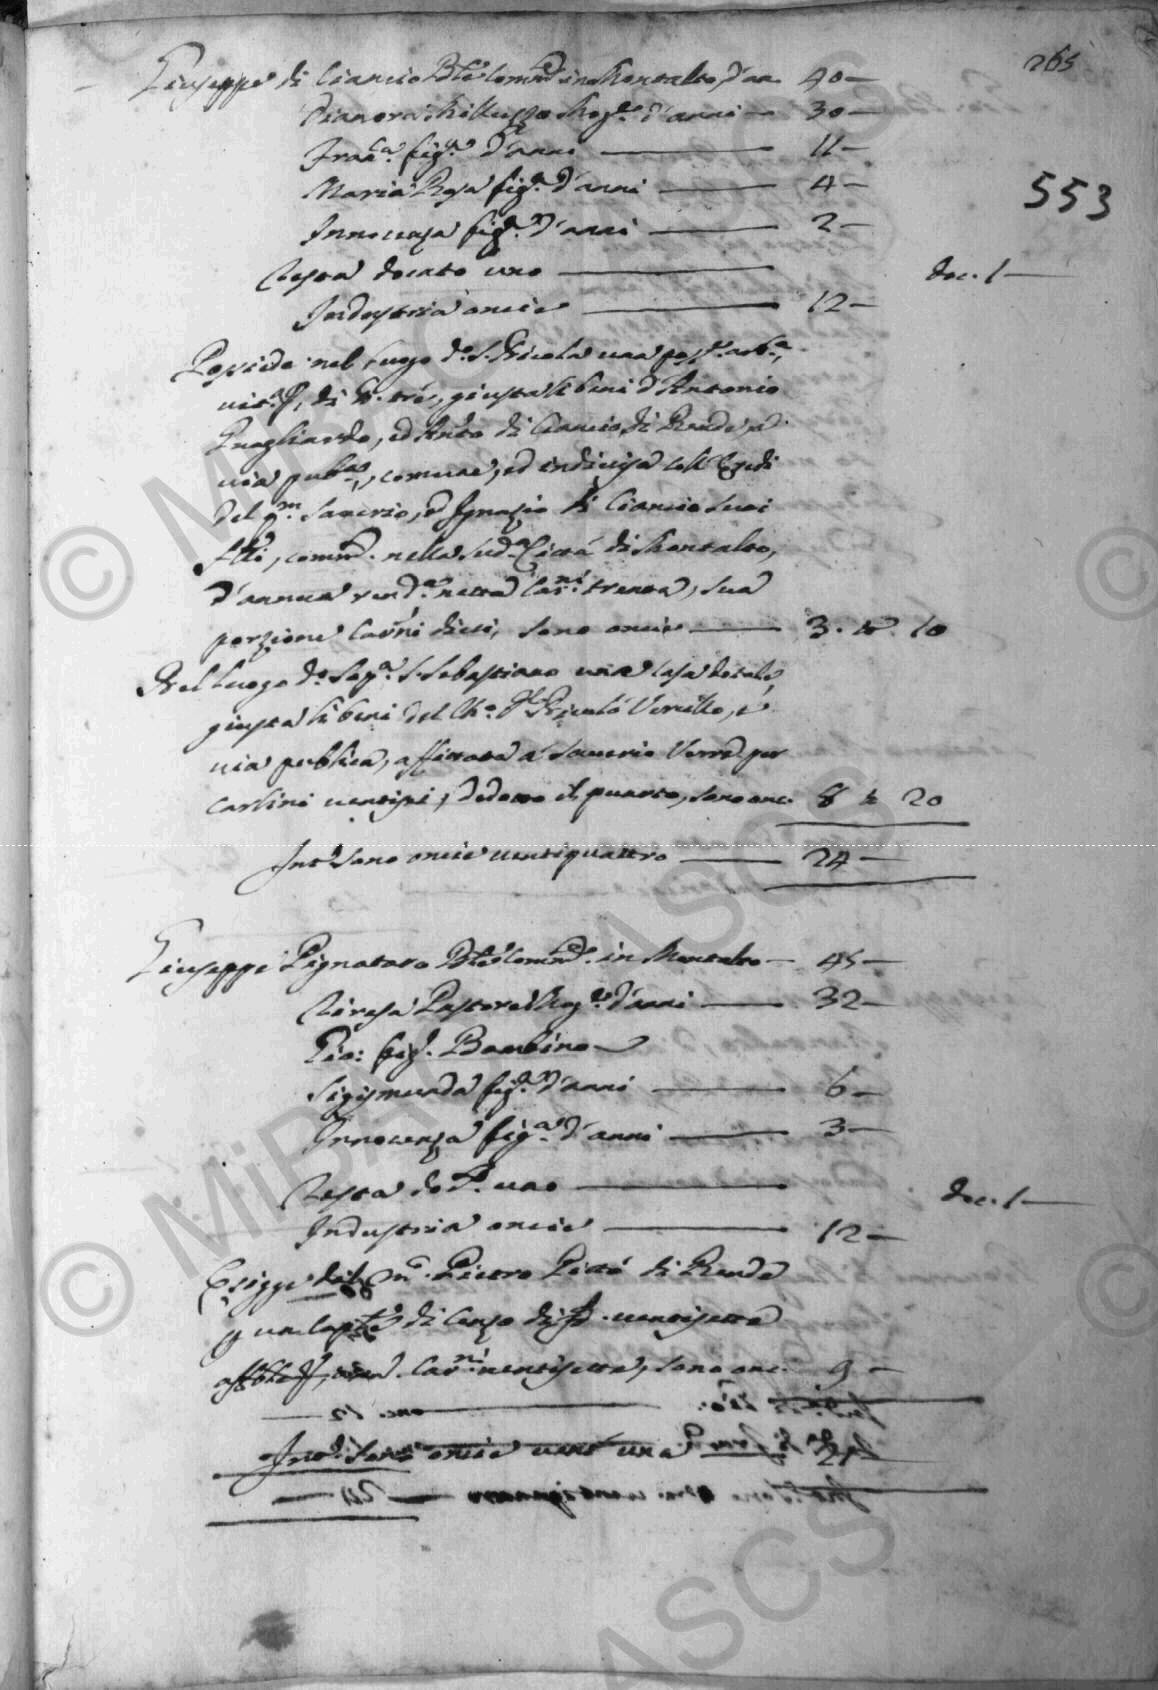 265
553
Giuseppe di Ciancio Ble comm.te in Montalto, d'an. 40 —
Dianora Milluzzo Mog.e d'anni — 30 —
Fran.ca fig.a d'anni — 11 —
Maria Rosa fig.a d'anni — 4 —
Innocenza fig.a d'anni — 2 —
Testa docato uno — doc. 1 —
Industria oncie — 12 —
Possiede nel luogo d.o S. Nicola una poss.e arb.a,
vit.a, di tt.e tre, giusta li beni d'Antonio
Quagliardo, ed Ant.o di Ciancio di Rende, e
via pub.a, comune, ed indivisa coll'Eredi
del qm. Saverio, ed Ignazio di Ciancio suoi
f.lli, comm.ti nella sud.a Città di Montalto,
d'annua rend.a netta Car.ni trenta, sua
porzione Carlni dieci, sono oncie — 3. tt. 10
Nel luogo d.o Sep.a S. Sebastiano una casa dotale,
giusta li beni del Ch.o Nicolò Verillo, e
via publica, affittata a Saverio Verre per
carlini ventisei, dedotto il quarto, sono onc. 8 tt 20
In t.o sono oncie ventiquattro — 24 —
Giuseppe Pignataro Ble comm.te in Montalto — 45 —
Teresa Pastore Mog.e d'anni — 32 —
Gio: fig.o Bambino —
Sigismunda fig.a d'anni — 6 —
Innocenza fig.a d'anni — 3 —
Testa doc.o uno — doc. 1 —
Industria oncie — 12 —
Esigge dal qm. Pietro di Rende
un cap.le di censo di ventisette
Car.ni ventisette, sono onc. 9 —
In t.o sono oncie vent'una — 21 —